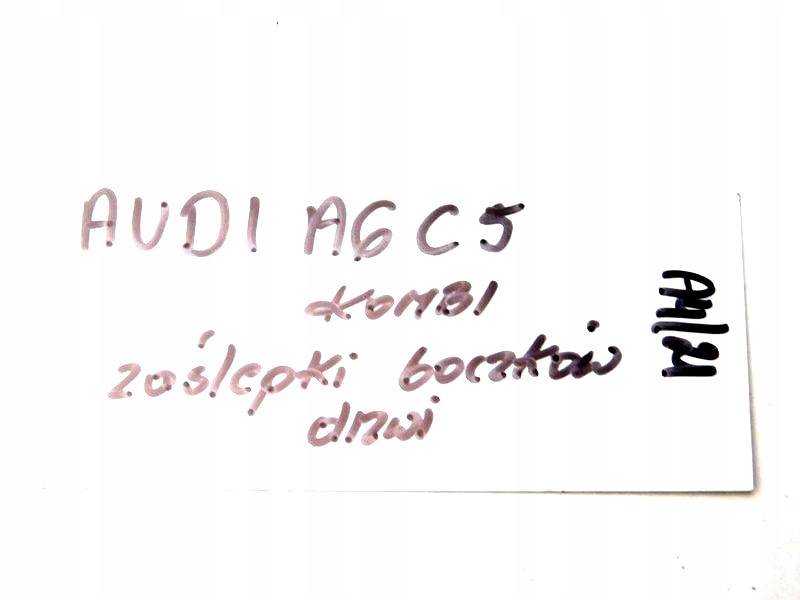 AUDI A6 C5
KOMBI
zaślepki boczków
drzwi
AM/21